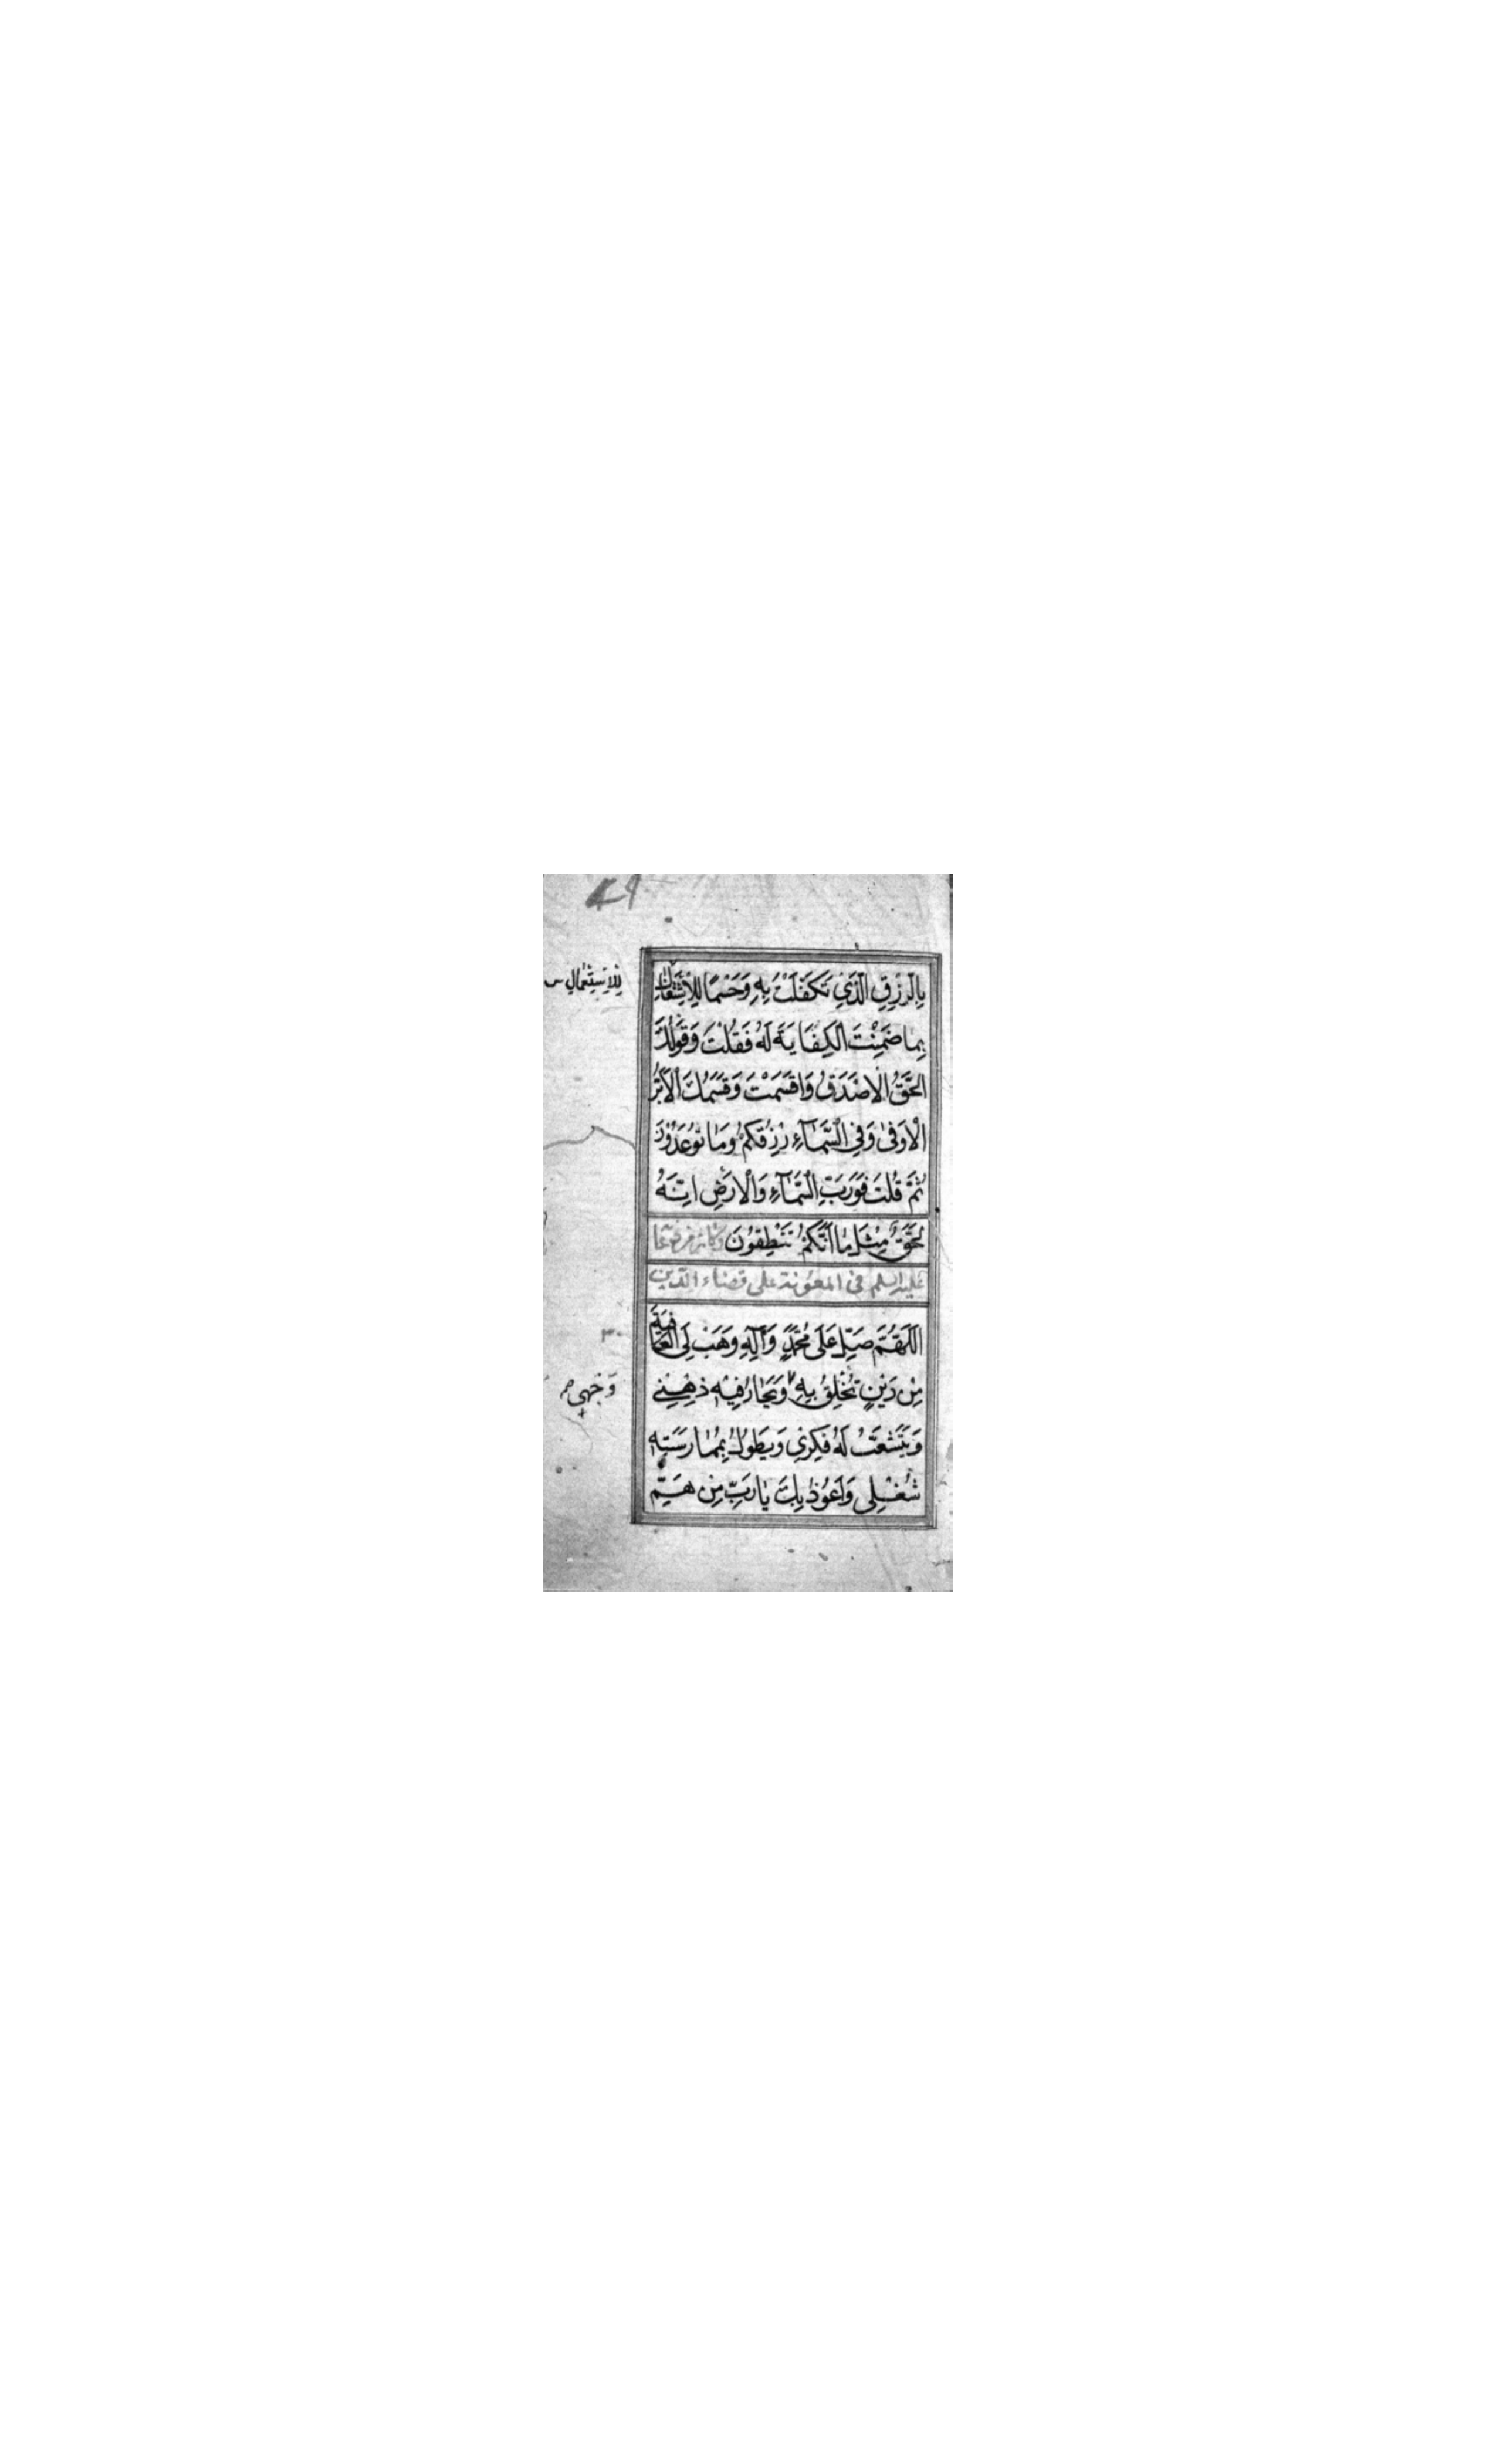 للاستعمال س
بِالرِّزْقِ الَّذِي تَكَفَّلْتَ بِهِ وَحَسْمًا لِلْاِشْتِغَالِ
بِمَا ضَمِنْتَ الْكِفَايَةَ لَهُ فَقُلْتَ وَقَوْلُكَ
الْحَقُّ الْاَصْدَقُ وَاَقْسَمْتَ وَقَسَمُكَ الْاَبَرُّ
الْاَوْفٰى وَفِي السَّمَآءِ رِزْقُكُمْ وَمَا تُوعَدُونَ
ثُمَّ قُلْتَ فَوَرَبِّ السَّمَآءِ وَالْاَرْضِ اِنَّهُ
لَحَقٌّ مِثْلَ مَا اَنَّكُمْ تَنْطِقُونَ وكان من دعا
عليه السلم في المعونة على قضاء الدين
اَللّٰهُمَّ صَلِّ عَلَى مُحَمَّدٍ وَآلِهِ وَهَبْ لِيَ الْعَافِيَةَ
٣٠
مِنْ دَيْنٍ تُخْلِقُ بِهِ وَيَحَارُ فِيهِ ذِهْنِي
وَجْهِي
وَيَتَشَعَّبُ لَهُ فِكْرِي وَيَطُولُ بِمُمَارَسَتِهِ
شُغْلِي وَاَعُوذُ بِكَ يَا رَبِّ مِنْ هَمِّ